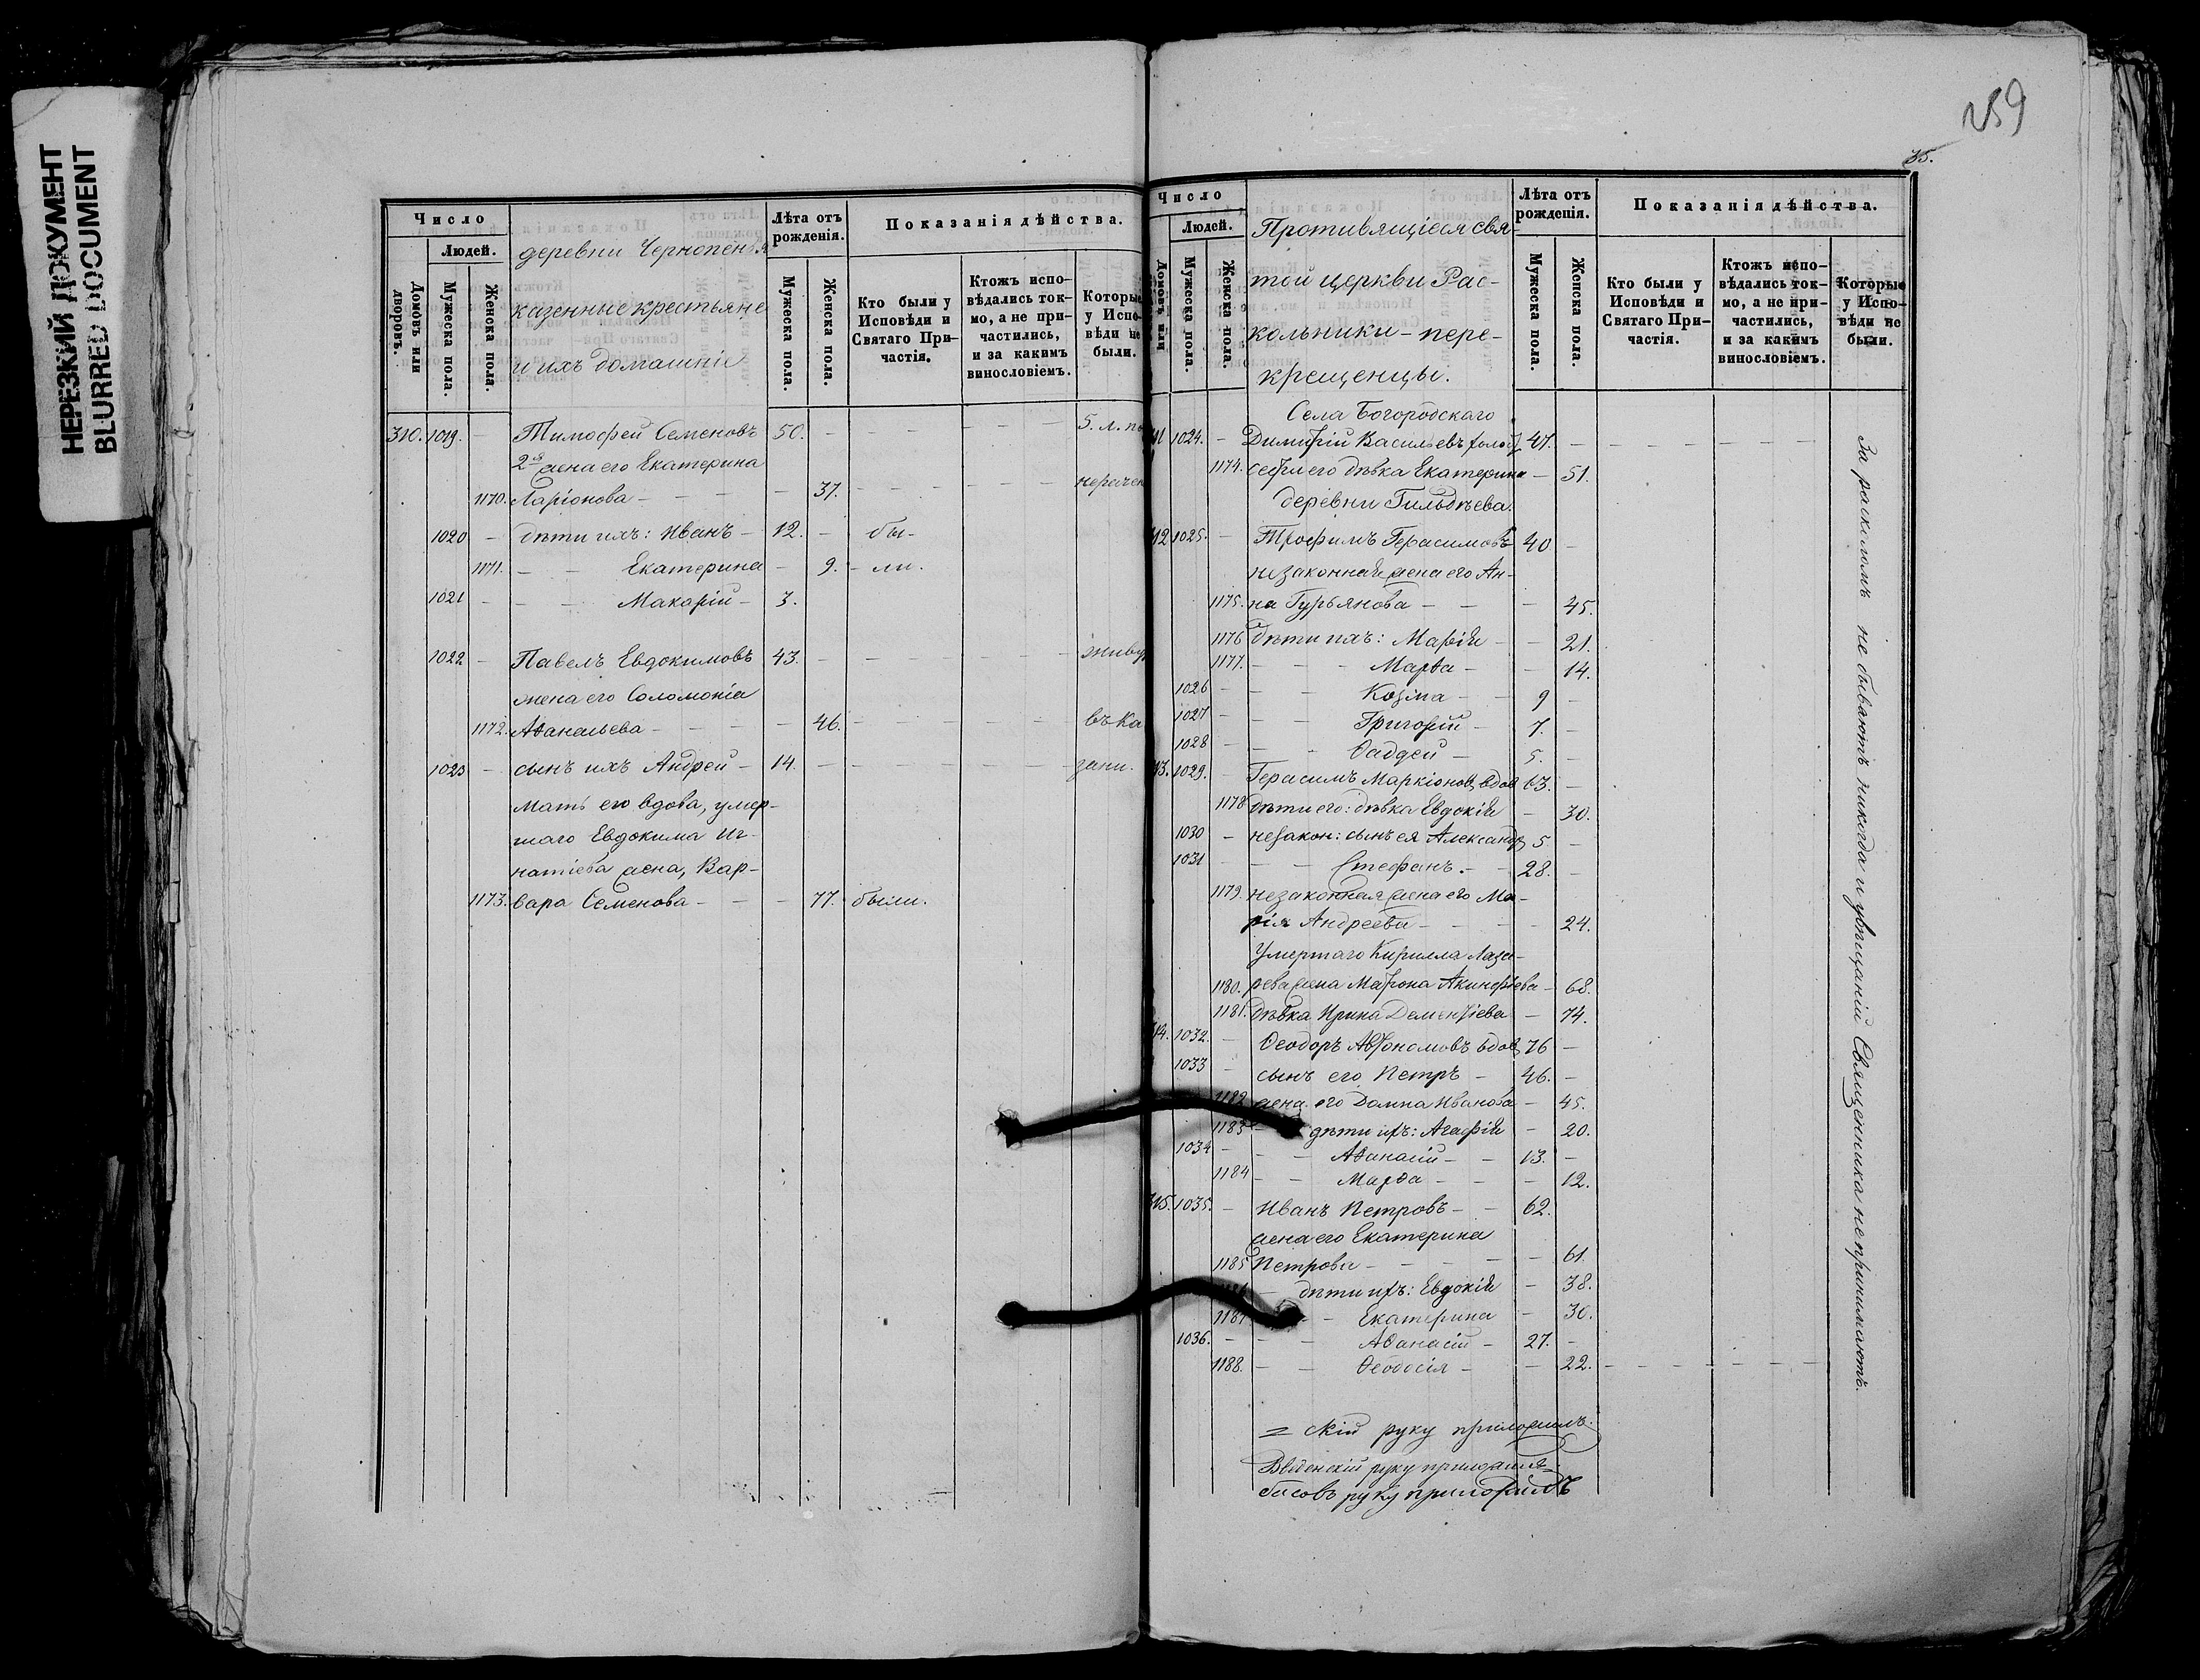 НЕРЕЗКИЙ ДОКУМЕНТ
BLURRED DOCUMENT
Число
Людей.
Домовъ или дворовъ.
Мужеска пола.
Женска пола.
деревни Чернопенья
казенные крестьяне
и ихъ домашніе
Лѣта отъ рожденія.
Мужеска пола.
Женска пола.
Показанія дѣйства.
Кто были у Исповѣди и Святаго Причастія.
Ктожъ исповѣдались токмо, а не причастились, и за какимъ винословіемъ.
Которые у Исповѣди не были.
310. 1019. - Тимофей Семеновъ 50. - - - - - 5. л. по
2я жена его Екатерина
1170. Ларіонова - - - - 37. - - - - - нерачен
1020 - дѣти ихъ: Иванъ - 12. - бы-
1171. - - Екатерина - 9. - ли.
1021 - - - Макарій - 3.
1022 - Павелъ Евдокимовъ 43. - - - - - - живу
жена его Соломонія
1172. Аѳанасьева - - - - 46. - - - - - въ Ка
1023 - сынъ ихъ Андрей - 14. - - - - - - зани.
Мать его вдова, умер-
шаго Евдокима Иг-
натіева жена, Вар-
1173. вара Семенова - - - 77. были.
259
35.
Число
Людей.
Домовъ или
Мужеска пола.
Женска пола.
Противящіеся свя-
той церкви Рас-
кольники - пере-
крещенцы.
Лѣта отъ рожденія.
Мужеска пола.
Женска пола.
Показанія дѣйства.
Кто были у Исповѣди и Святаго Причастія.
Ктожъ исповѣдались токмо, а не причастились, и за какимъ винословіемъ.
Которые у Исповѣди не были.
Села Богородскаго
11 1024. - Димитрій Васильевъ холос 47. - - - - -
1174. сестра его дѣвка Екатерина - 51.
деревни Гильдѣева.
12 1025. - Трофимъ Герасимовъ 40 -
незаконная жена его Ан-
1175. на Гурьянова - - - 45.
1176 дѣти ихъ: Марія - - 21.
1177. - - - Марѳа - - 14.
1026 - - - Козма - - 9 -
1027 - - - Григорій - 7. -
1028 - - - Ѳаддей - 5. -
13. 1029. - Герасимъ Маркіонов, вдов 63. -
1178 дѣти его: дѣвка Евдокія - 30.
1030 - незакон: сынъ ея Александр 5 -
1031 - - - Стефанъ. - - 28. -
1179. незаконная жена его Ма-
рія Андреева - - - - 24.
Умершаго Кирилла Лаза-
1180. рева жена Матрона Акинфіева - 68.
1181. Дѣвка Ирина Дементіева - 74.
14. 1032. - Ѳеодоръ Автономовъ вдов, 76 -
1033 - сынъ его Петръ - 46. -
1182 жена его Домна Иванова - 45.
1183 - дѣти ихъ: Агафія - 20.
1034 - - - Аѳанасій - - 13. -
1184 - - Марѳа - - - 12.
315. 1035. - Иванъ Петровъ - - 62.
жена его Екатерина
1185 Петрова - - - - - 61.
- дѣти ихъ: Евдокія - 38.
1187 - - Екатерина - 30.
1036. - - - Аѳанасій - 27. -
1188. - - Ѳеодосія - - 22. - - - - -
За расколомъ не бываютъ никогда и увѣщаній Священника не принимаютъ.
= скій руку приложилъ.
Введенскій руку приложилъ
руку приложилъ